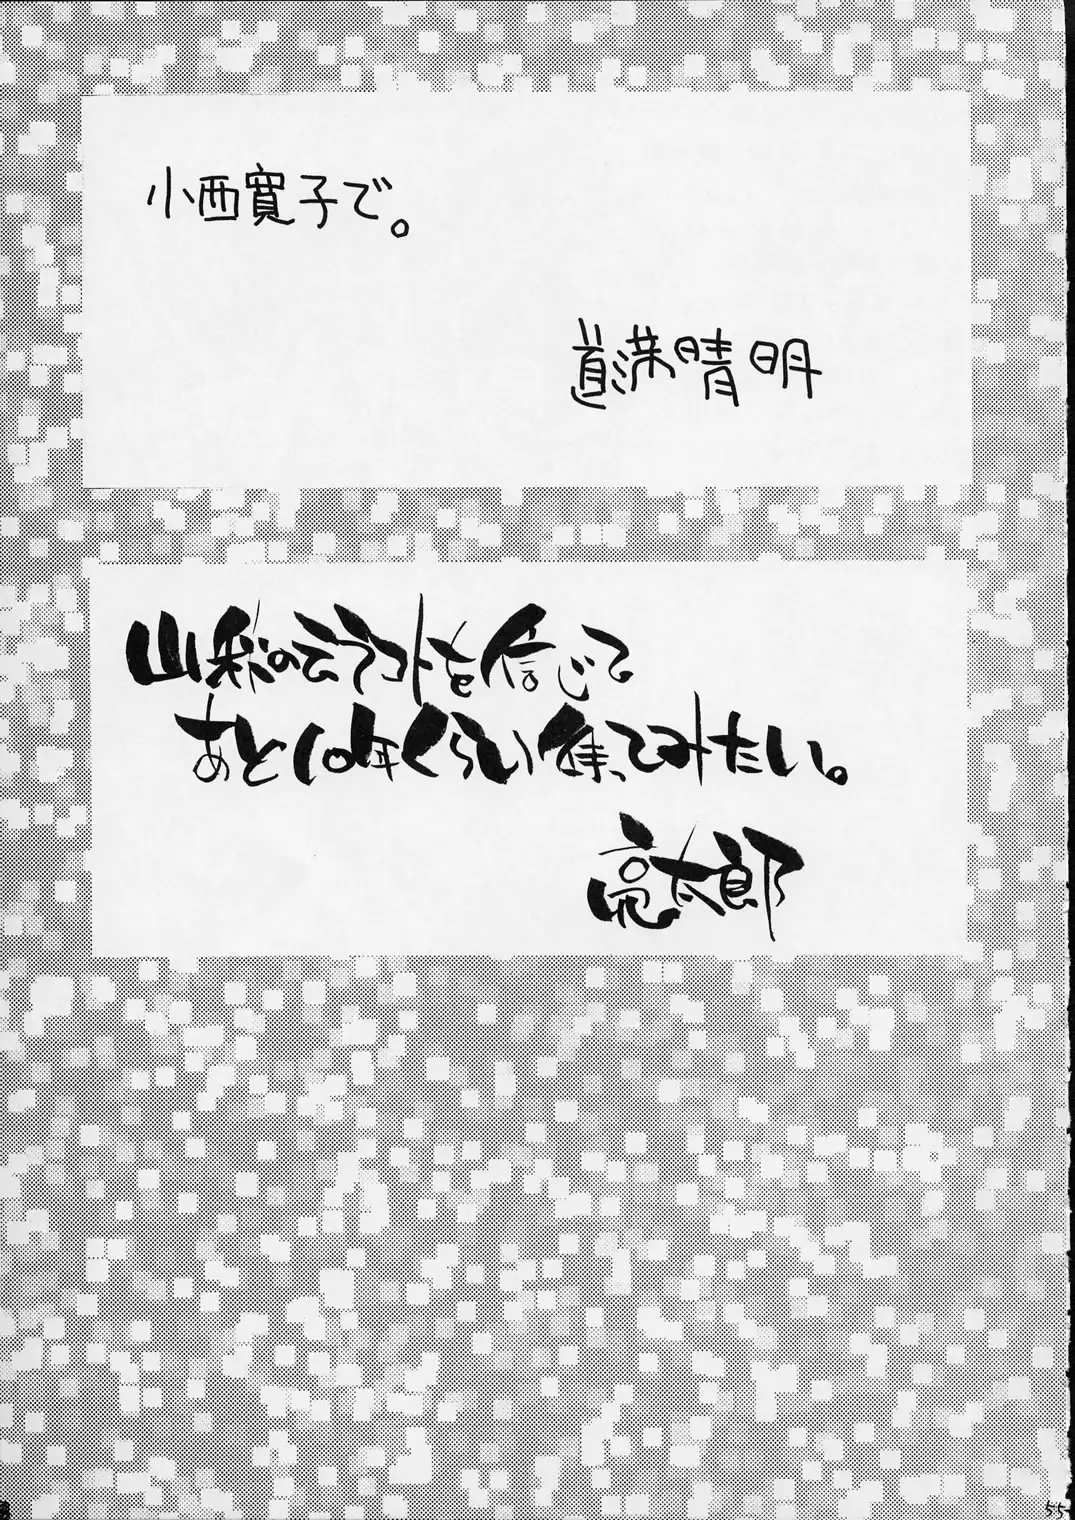 小西寛子で。
道満晴明
山梨のミラコトを信じて
あと10年くらい待ってみたい。
亮太郎
55